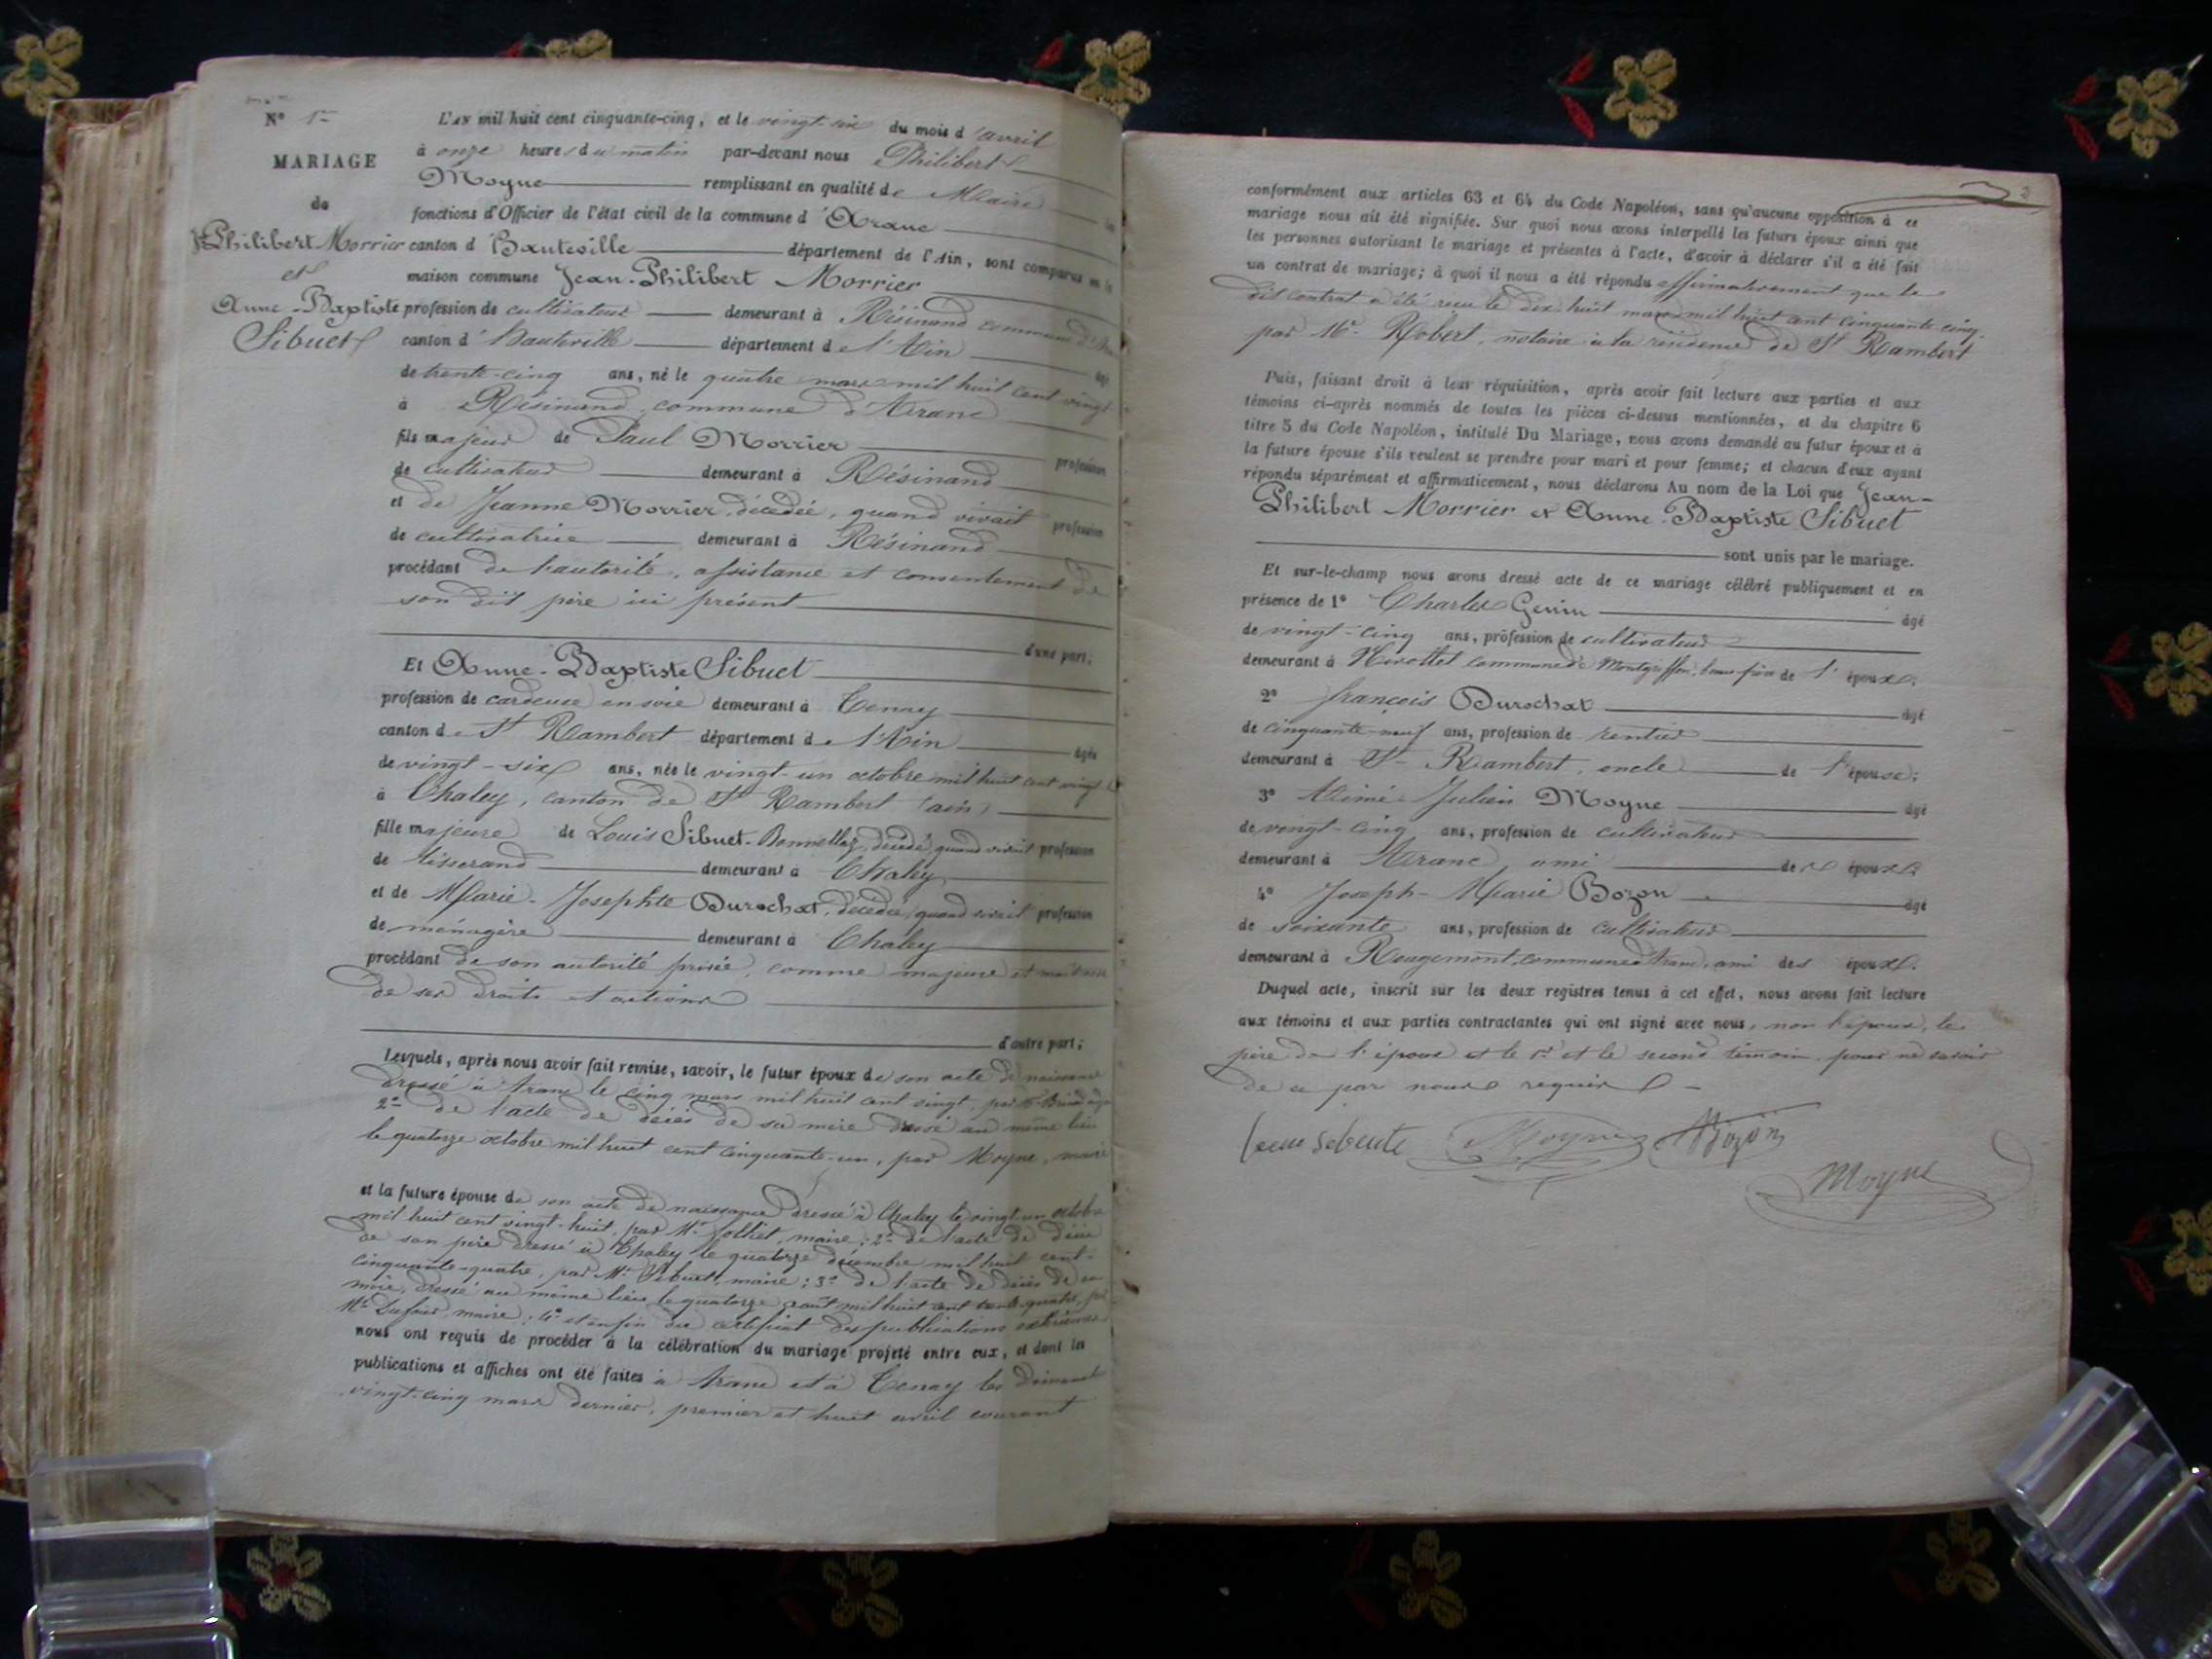 N° 1er
MARIAGE
de
Jn Philibert Morrier
et
Anne-Baptiste
Sibuet
L'AN mil huit cent cinquante-cinq, et le vingt-six du mois d'avril
à onze heures du matin par-devant nous Philibert
Moyne remplissant en qualité de Maire les
fonctions d'Officier de l'état civil de la commune d'Aranc
canton d'Hauteville département de l'Ain, sont comparus en la
maison commune Jean-Philibert Morrier
profession de cultivateur demeurant à Résinand commune d'Aranc
canton d'Hauteville département de l'Ain âgé
de trente-cinq ans, né le quatre mars mil huit cent vingt
à Résinand, commune d'Aranc
fils majeur de Paul Morrier profession
de cultivateur demeurant à Résinand
et de Jeanne Morrier, décédée, quand vivait profession
de cultivatrice demeurant à Résinand
procédant de l'autorité, assistance et consentement de
son dit père ici présent
d'une part;
Et Anne-Baptiste Sibuet
profession de cardeuse en soie demeurant à Tenay
canton de St Rambert département de l'Ain âgée
de vingt-six ans, née le vingt-un octobre mil huit cent vingt
à Chaley, canton de St Rambert (ain)
fille majeure de Louis Sibuet-Bonnellaz, décédé, quand vivait profession
de tisserand demeurant à Chaley
et de Marie-Josephte Durochat, décédée, quand vivait profession
de ménagère demeurant à Chaley
procédant de son autorité privée, comme majeure et maîtresse
de ses droits et actions
d'autre part;
Lesquels, après nous avoir fait remise, savoir, le futur époux de son acte de naissance
dressé à Aranc le cinq mars mil huit cent vingt, par Mr
2° de l'acte de décès de sa mère dressé au même lieu
le quatorze octobre mil huit cent cinquante-un, par Moyne, maire
et la future épouse de son acte de naissance dressé à Chaley le vingt-un octobre
mil huit cent vingt-huit, par Mr Jolliet, maire; 2° de l'acte de décès
de son père dressé à Chaley le quatorze décembre mil huit cent
cinquante-quatre, par Mr Sibuet, maire; 3° de l'acte de décès de sa
mère, dressé au même lieu le quatorze août mil huit cent trente-quatre, par
Mr Dufour, maire; 4° et enfin du certificat des publications extérieures
nous ont requis de procéder à la célébration du mariage projeté entre eux, et dont les
publications et affiches ont été faites à Aranc et à Tenay les dimanches
vingt-cinq mars dernier, premier et huit avril courant
conformément aux articles 63 et 64 du Code Napoléon, sans qu'aucune opposition à ce
mariage nous ait été signifiée. Sur quoi nous avons interpellé les futurs époux ainsi que
les personnes autorisant le mariage et présentes à l'acte, d'avoir à déclarer s'il a été fait
un contrat de mariage; à quoi il nous a été répondu affirmativement que le
dit contrat a été reçu le dix-huit mars mil huit cent cinquante-cinq
par Me Robert, notaire à la résidence de St Rambert
Puis, faisant droit à leur réquisition, après avoir fait lecture aux parties et aux
témoins ci-après nommés de toutes les pièces ci-dessus mentionnées, et du chapitre 6
titre 5 du Code Napoléon, intitulé Du Mariage, nous avons demandé au futur époux et à
la future épouse s'ils veulent se prendre pour mari et pour femme; et chacun d'eux ayant
répondu séparément et affirmativement, nous déclarons Au nom de la Loi que Jean-
Philibert Morrier et Anne-Baptiste Sibuet
sont unis par le mariage.
Et sur-le-champ nous avons dressé acte de ce mariage célébré publiquement et en
présence de 1° Charles Genin âgé
de vingt-cinq ans, profession de cultivateur
demeurant à Nivollet commune de Montgriffon, beau-frère de l'époux;
2° françois Durochat âgé
de cinquante-neuf ans, profession de rentier
demeurant à St Rambert, oncle de l'épouse;
3° Aimé-Julien Moyne âgé
de vingt-cinq ans, profession de cultivateur
demeurant à Aranc, ami des époux;
4° Joseph-Marie Bozon âgé
de soixante ans, profession de cultivateur
demeurant à Rougemont, commune d'Aranc, ami des époux.
Duquel acte, inscrit sur les deux registres tenus à cet effet, nous avons fait lecture
aux témoins et aux parties contractantes qui ont signé avec nous, non l'époux, le
père de l'époux et le 1er et le second témoin, pour ne savoir
de ce par nous requis
Moyne Bozon
Moyne